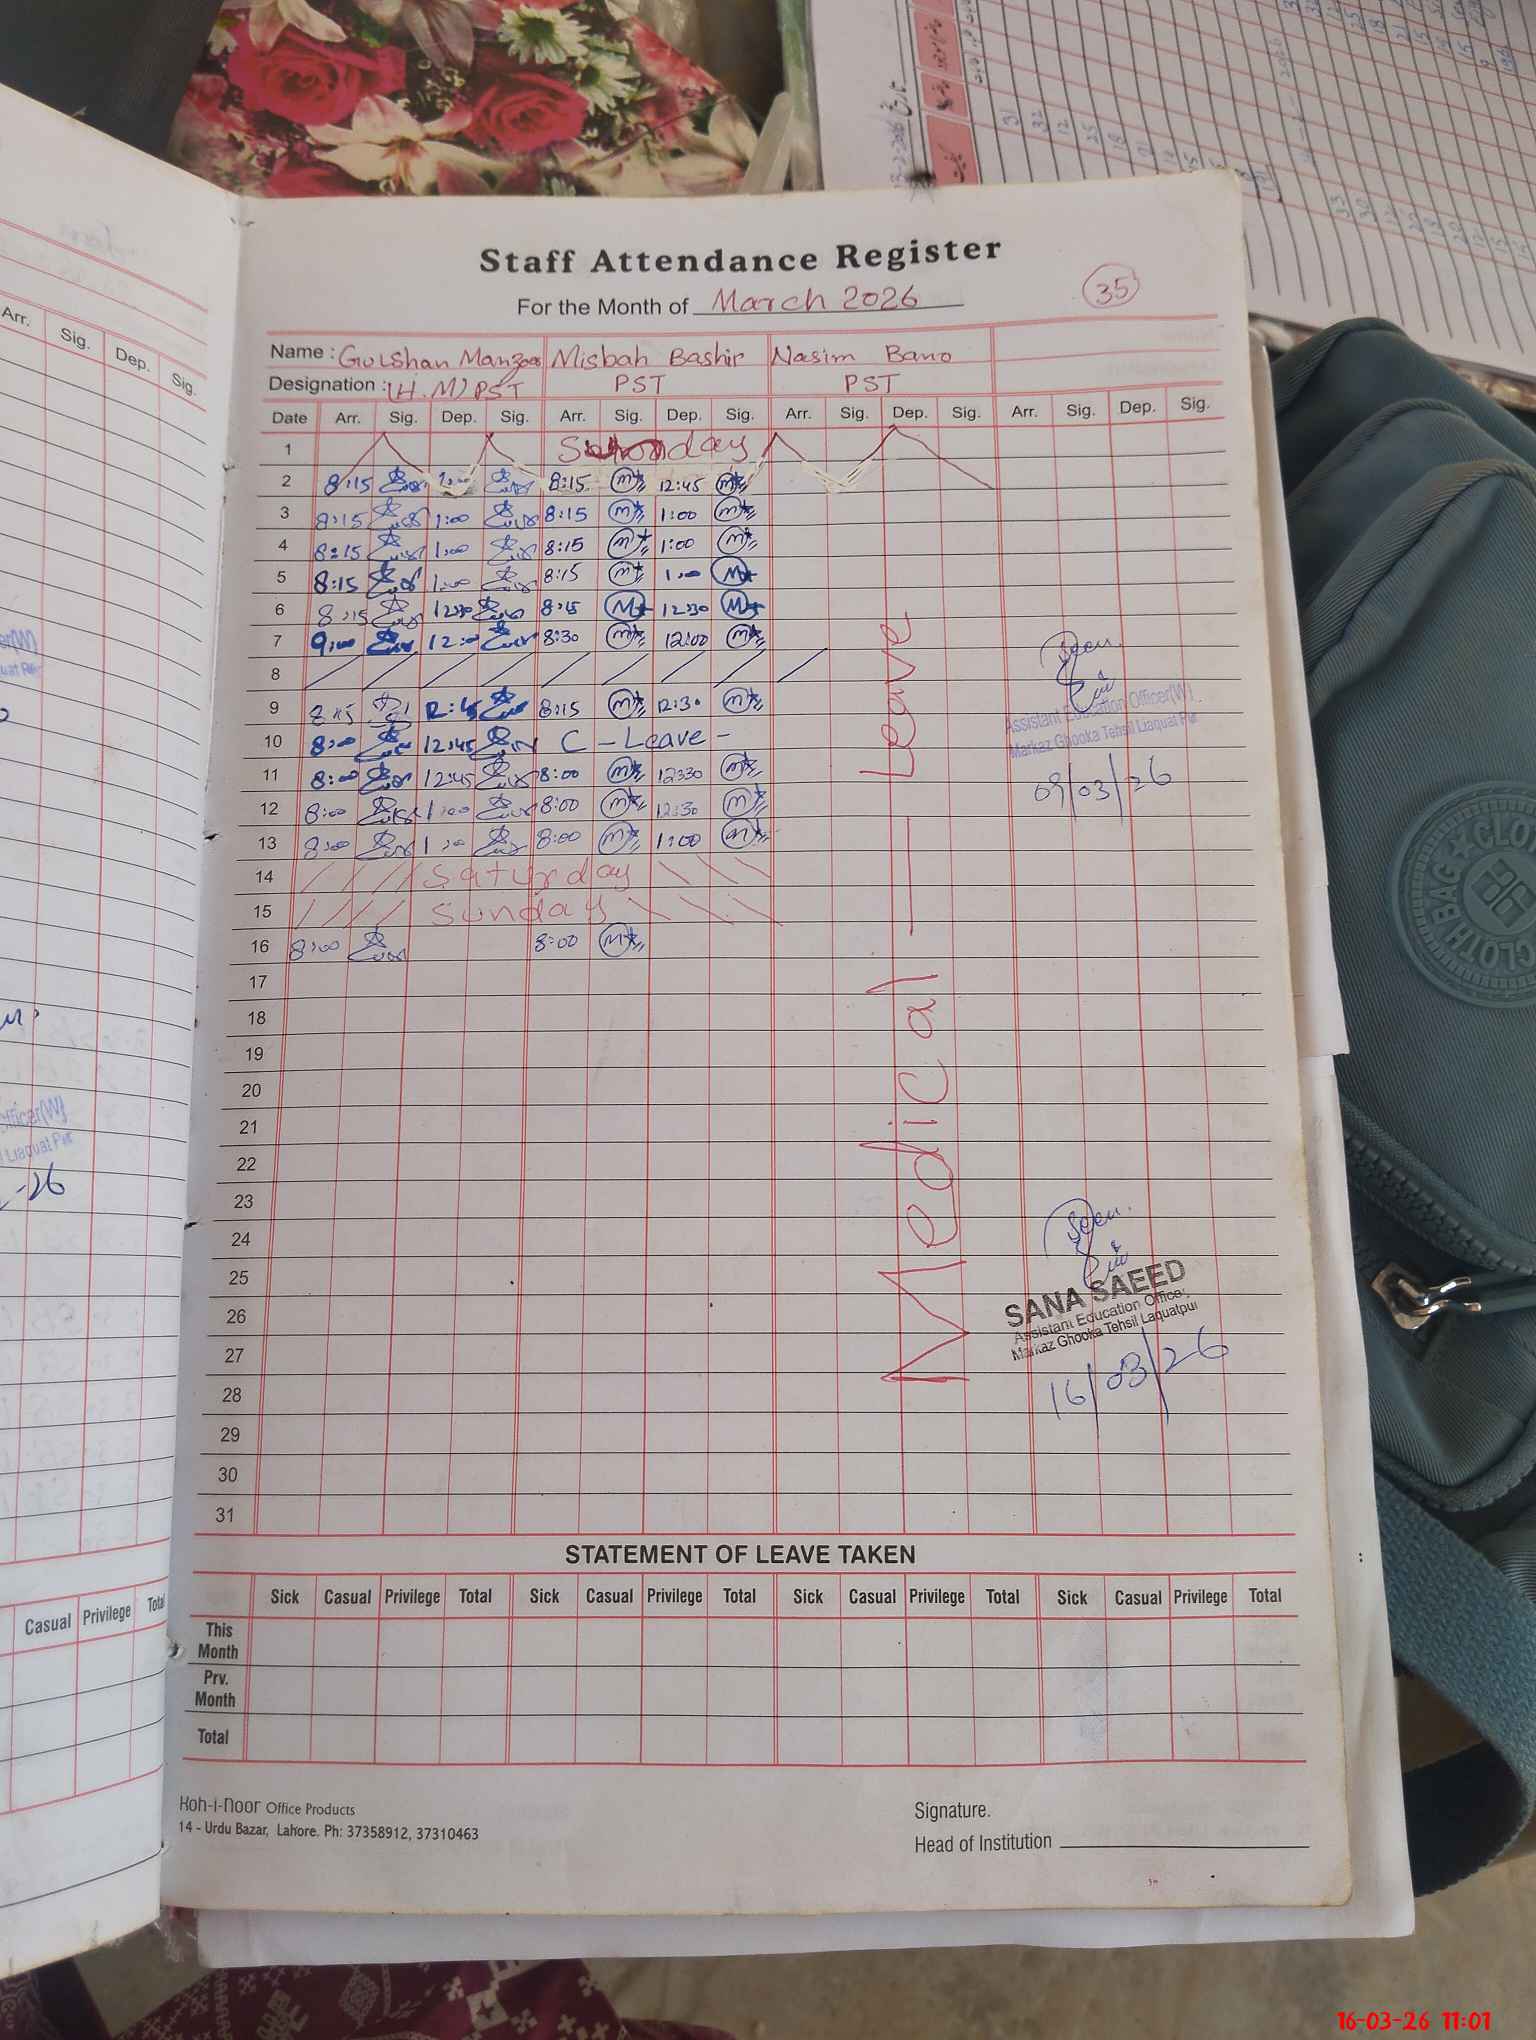 Staff Attendance Register
For the Month of March 2026
35
Name : Gulshan Manzoor Misbah Bashir Nasim Bano
Designation : (H.M) PST PST PST
Date Arr. Sig. Dep. Sig. Arr. Sig. Dep. Sig. Arr. Sig. Dep. Sig. Arr. Sig. Dep. Sig.
1 Sunday
2 8:15 1:00 8:15 12:45
3 8:15 1:00 8:15 1:00
4 8:15 1:00 8:15 1:00
5 8:15 1:00 8:15 1:00
6 8:15 12:30 8:15 12:30
7 9:00 12:00 8:30 12:00
8
9 8:15 12:45 8:15 12:30
10 8:00 12:45 C - Leave -
11 8:00 12:45 8:00 12:30
12 8:00 1:00 8:00 12:30
13 8:00 1:00 8:00 1:00
14 Saturday
15 Sunday
16 8:00 8:00
17
18
19
20
21
22
23
24
25
26
27
28
29
30
31
Medical Leave
Seen.
Assistant Education Officer(W)
Markaz Ghooka Tehsil Liaquat Pur
09/03/26
Seen.
SANA SAEED
Assistant Education Officer,
Markaz Ghooka Tehsil Liaquatpur
16/03/26
STATEMENT OF LEAVE TAKEN
Sick Casual Privilege Total Sick Casual Privilege Total Sick Casual Privilege Total Sick Casual Privilege Total
This Month
Prv. Month
Total
Koh-i-noor Office Products
14 - Urdu Bazar, Lahore. Ph: 37358912, 37310463
Signature.
Head of Institution
Arr. Sig. Dep. Sig.
Casual Privilege Total
CLOTH BAG
16-03-26 11:01